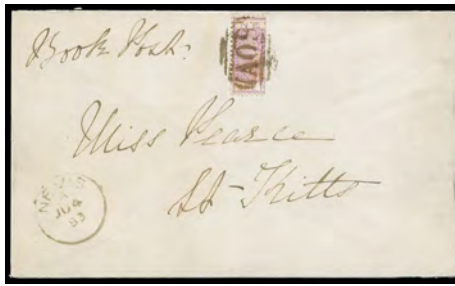 Book Post.
A09
Miss Pearce
St-Kitts
JU 4
83